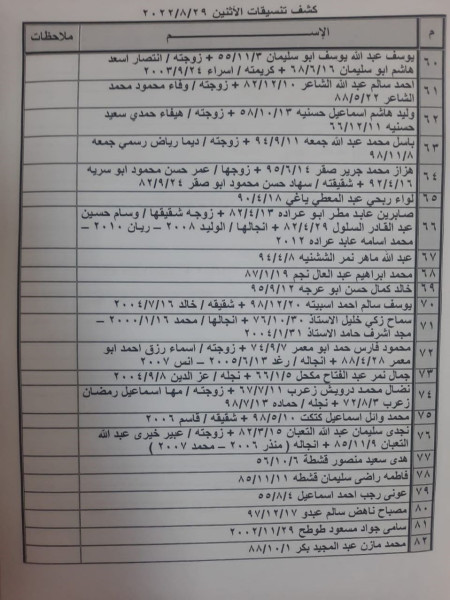 كشف تنسيقات الأثنين ٢٠٢٢/٨/٢٩
م الإســم ملاحظات
٦٠ يوسف عبد الله يوسف ابو سليمان ٥٥/١١/٣ + زوجته / انتصار اسعد
هاشم ابو سليمان ٦٨/٦/١٦ + كريمته / اسراء ٢٠٠٣/٩/٢٤
٦١ احمد سالم عبد الله الشاعر ٨٢/١٢/١٠ + زوجته / وفاء محمود محمد
الشاعر ٨٨/٥/٢٢
٦٢ وليد هاشم اسماعيل حسنيه ٥٨/١٠/١٣ + زوجته / هيفاء حمدي سعيد
حسنيه ٦٦/١٢/١١
٦٣ باسل محمد عبد الله جمعه ٩٤/٩/١١ + زوجته / ديما رياض رسمي جمعه
٩٨/١١/٨
٦٤ هزار محمد جرير صقر ٩٥/٦/١٤ + زوجها / عمر حسن محمود ابو سريه
٩٢/٤/١٦ + شقيقته / سهاد حسن محمود ابو صقر ٨٢/٩/٢٤
٦٥ لواء ربحي عبد المعطي ياغي ٩٠/٤/١٨
٦٦ صابرين عابد مطر ابو عراده ٨٢/٤/١٣ + زوجة شقيقها / وسام حسين
عبد القادر السلول ٨٢/٤/٢٩ + انجالها / الوليد ٢٠٠٨ – ريان ٢٠١٠ –
محمد اسامه عابد عراده ٢٠١٢
٦٧ عبد الله ماهر نمر الششنيه ٩٤/٤/٨
٦٨ محمد ابراهيم عبد العال نجم ٨٧/١/١٩
٦٩ خالد كمال حسن ابو عرجه ٩٥/٩/١٢
٧٠ يوسف سالم احمد اسبيته ٩٨/١٢/٢٠ + شقيقه / خالد ٢٠٠٤/٧/١٦
٧١ سماح زكي خليل الاستاذ ٧٦/١٠/٣٠ + انجالها / محمد ٢٠٠٠/١/١٦ –
مجد اشرف حامد الاستاذ ٢٠٠٤/١/٣١
٧٢ محمود فارس حمد ابو معمر ٧٤/٩/٧ + زوجته / اسماء رزق احمد ابو
معمر ٨٨/٤/٢٨ + انجاله / رغد ٢٠٠٥/٦/١٣ – انس ٢٠٠٧
٧٣ جمال نمر عبد الفتاح مكحل ٦٦/١/٥ + نجله / عز الدين ٢٠٠٤/٩/٨
٧٤ نضال محمد درويش زعرب ٦٧/٧/١١ + زوجته / مها اسماعيل رمضان
زعرب ٧٢/٨/٣ + نجله / حماده ٩٨/٧/١٣
٧٥ محمد وائل اسماعيل كتكت ٩٨/٥/١٠ + شقيقه / قاسم ٢٠٠٦
٧٦ نجدى سليمان عبد الله التعبان ٨٢/٣/١٥ + زوجته / عبير خيرى عبد الله
التعبان ٨٥/١١/٩ + انجاله ( منذر ٢٠٠٦ – محمد ٢٠٠٧ )
٧٧ هدى سعيد منصور قشطة ٥٦/١٠/٦
٧٨ فاطمه راضى سليمان قشطه ٨٥/١١/١١
٧٩ عونى رجب احمد اسماعيل ٥٥/٨/٤
٨٠ مصباح ناهض سالم عبدو ٩٧/١٢/١٧
٨١ سامى جواد مسعود طوطح ٢٠٠٢/١١/٢٩
٨٢ محمد مازن عبد المجيد بكر ٨٨/١٠/١